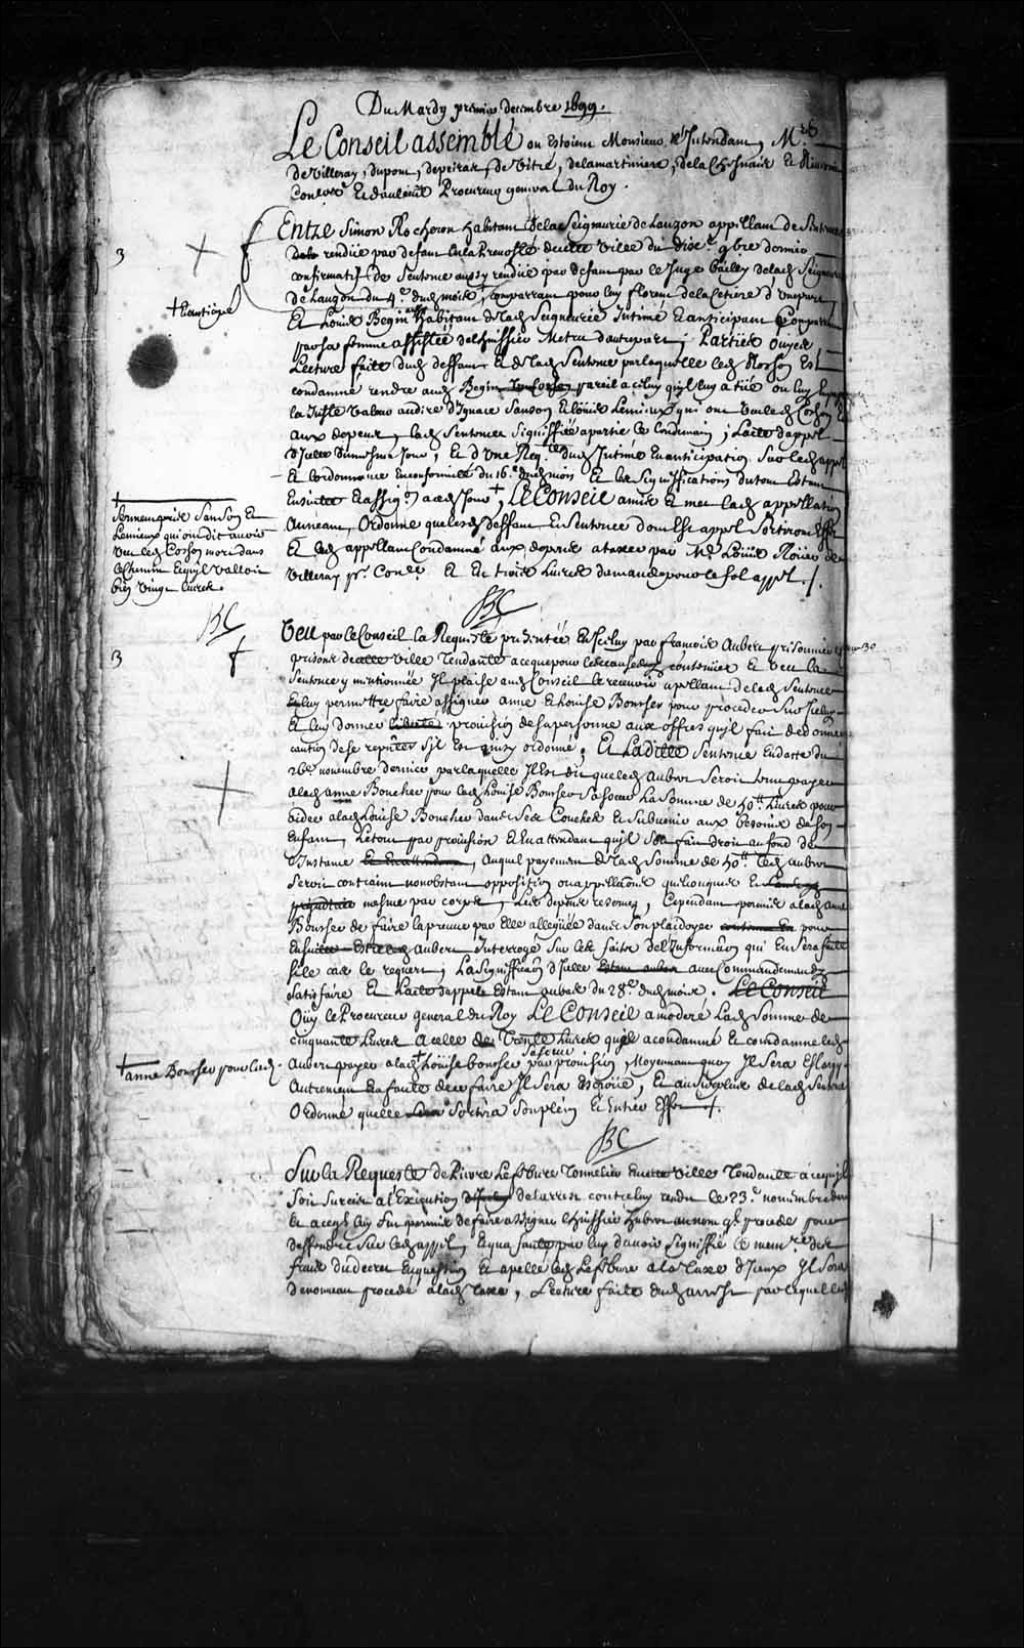 Du Mardy premier decembre 1699.
Le Conseil assemblé ou Estoient Monsieur l'Intendant, Mrs
de Villeray, dupont, depeiras, de Vitré, delamartiniere, dela Chesnaie Et
Conlers Et dauteuil Procureur general du Roy.
3
Entre Simon Rocheron habitant dela Seigneurie de Lauzon appellant de Sentence
rendüe par defaut En la Prevosté de cette Ville du dixe 9bre dernier
confirmatif de Sentence aussy rendüe par defaut par le Juge Bailly delad Seigneurie
de Lauzon du 4e dud mois, comparant par luy florent delaCetiere d'Unepart
Et Louis Begin habitant de lad Seigneurie Intimé Et anticipant Comparant
par sa femme assistée de l'huissier Metru dautrepart; Parties ouyes
Lecture faite dud deffaut Et de lad Sentence par laquelle led Rochon Est
condamné rendre aud Begin pareil a celuy quil luy a tüé ou luy
la Juste Valeur au dire d'Ignace Sanson Et Louis Lemieux qui ont veu led Cochon Et
aux depens, lad Sentence Signiffiée a partie le lendemain; Lacte d'appel
d'Icelle du mesme Jour, Et d'Une Reqte dud Intimé En anticipation Sur led appel
Et lordonnance En conformité du 16e dud mois Et les Significations du tout Estant
Ensuitte Et assigon a ced Jour +, Le Conseil a mis Et met lad appellation
Au neant, Ordonne que lesd deffaut Et Sentence dont Est appel Sortiront Effet
Et led appellant Condamné aux depens a taxer par Me Loüis Roüer de
Villeray pr. Coner Et En trois Livres damande pour le fol appel ./.
+ Serment pris de Sanson Et
Lemieux qui ont dit avoir
veu led Cochon mort dans
le chemin Et quil valloit
bien vingt livres.
BC
BC
3
Veu par le Conseil la Requeste presentée En Iceluy par francois Aubert prisonnier
prisons decette Ville Tendante a ceque pour les causes y contenües Et veu la
Sentence y mentionnée Il plaise aud Conseil le recevoir apellant de lad Sentence
Et luy permettre faire assigner anne Et Louise Bouscher pour proceder Sur Icelle
Et luy donner provision de sa personne aux offres quil fait de donner
caution de se represter Sil Est ainsy ordonné; Et Ladicte Sentence Endatte du
26e novembre dernier par laquelle Il Est dit que led Aubert Seroit tenu payer
a lad anne Boucher pour lad Loüise Boucher Sa soeur La Somme de 50lt Livres pour
aider a lad Loüise Boucher dans Ses Couches Et Subvenir aux besoins de son
Enfant, Letout par provision Et En attendant quil Soit fait droit au fond de
L'Instance, Auquel payement de lad Somme de 50lt led aubert
Seroit contraint nonobstant opposition ou appellations quelconques
mesme par corps, Les depens reservez, Cependant permis a lad anne
Boucher de faire la preuve par Elle alleguée dans Son plaidoyer pour
Aubert Interrogé Sur les faits de l'Informaon qui En Sera faite
sile cas le requert; La Signiffiaon d'Icelle avec Commandement dy
Satisfaire Et Lacte d'appel Estant aubas du 28e dud mois. Le Conseil
Ouy le Procureur general du Roy Le Conseil a moderé Lad Somme de
cinquante Livres a celle de Trente Livres quil a condamné Et condamne led
Aubert payer a lad + Loüise boucher Sa soeur par provision, Moyennant quoy Il Sera Eslargy
Autrement Et a faute de ce faire Il Sera Escroüé, Et au Surplus de lad Sentence
Ordonne quelle Sortira Son plein Et Entier Effet ./.
+ anne Boucher pour lad
BC
Sur la Requeste de Pierre Lefebure Tonnelier En cette Ville Tendante a cequil
Soit Surcis a l'Execution de larrest contre luy rendu le 23e novembre dernier
Et a ceque luy Soit permis de faire assigner lhuissier hubert au nom ql procede pour
deffendre Sur led appel, Et qua faute par luy davoir Signiffié le memre des
frais du decret En question Et apellé led Lefebure a la taxe d'Iceux Il Sera
de nouveau procedé a lad taxe, Lecture faite dud arrest par lequel le